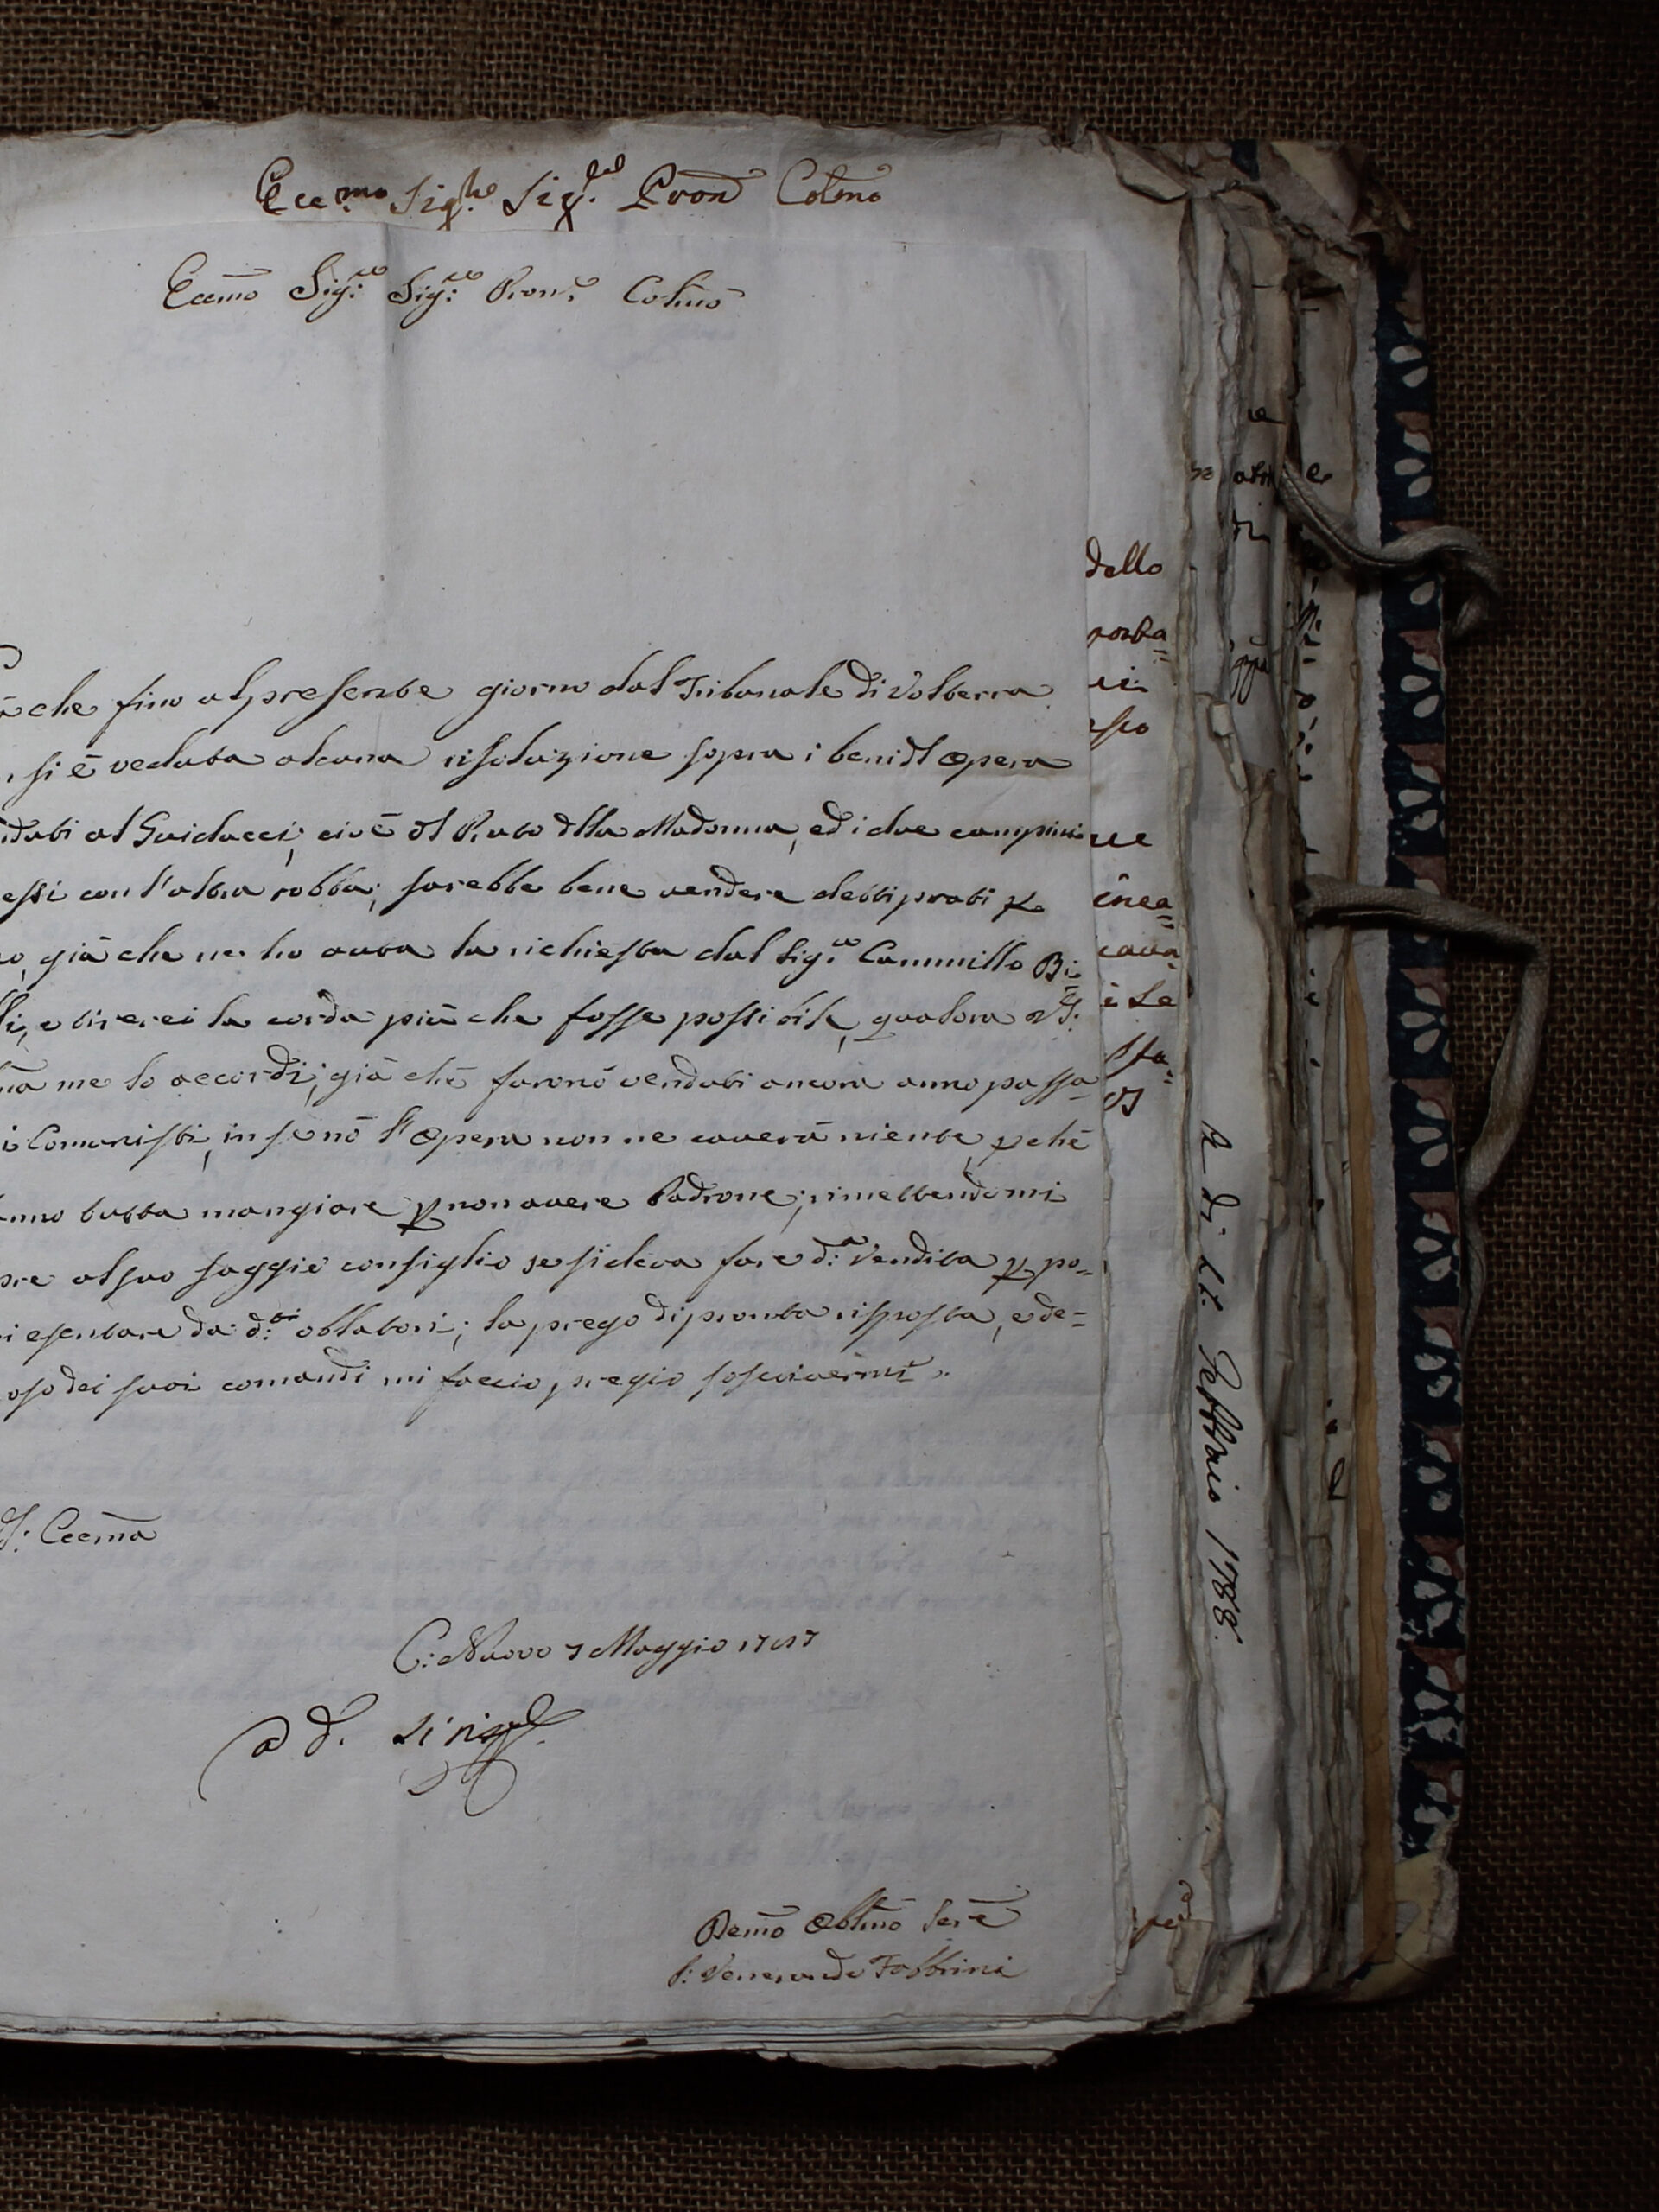 Ecc.mo Sig.re Sig.re Pron Colmo
Eccmo Sig.re Sig.re Pron.e Colmo
che fino al presente giorno dal Tribunale di Volterra
si è veduta alcuna risoluzione sopra i beni dl Opera
al Guiducci, cioè dl Prato dlla Madonna, ed i due campini
essi con l'altra robba; sarebbe bene vendere detti prati
già che ne ho auta la richiesta dal Sig.re Cammillo Bi=
e tirerei la corda più che fosse possibile, qualora VS:
me lo accordi; già chè furonò venduti ancora anno passa=
i Comunisti, in se nò l'Opera non ne caverà niente, pchè
tutta mangiare p non avere Padrone; rimettendomi
al suo saggio consiglio se si deva fare d:a Vendita p po=
esentare da d:ti oblatori; la prego di pronta risposta, e de=
oso dei suoi comandi mi faccio pregio soscrivermi
S: Eccma
C: Nuovo 7 Maggio 1787
Devmo Oblmo Sere
P: Venerando Fabbrini
dello
ue
cava
i Le
A di 22. Febbraio 1788.